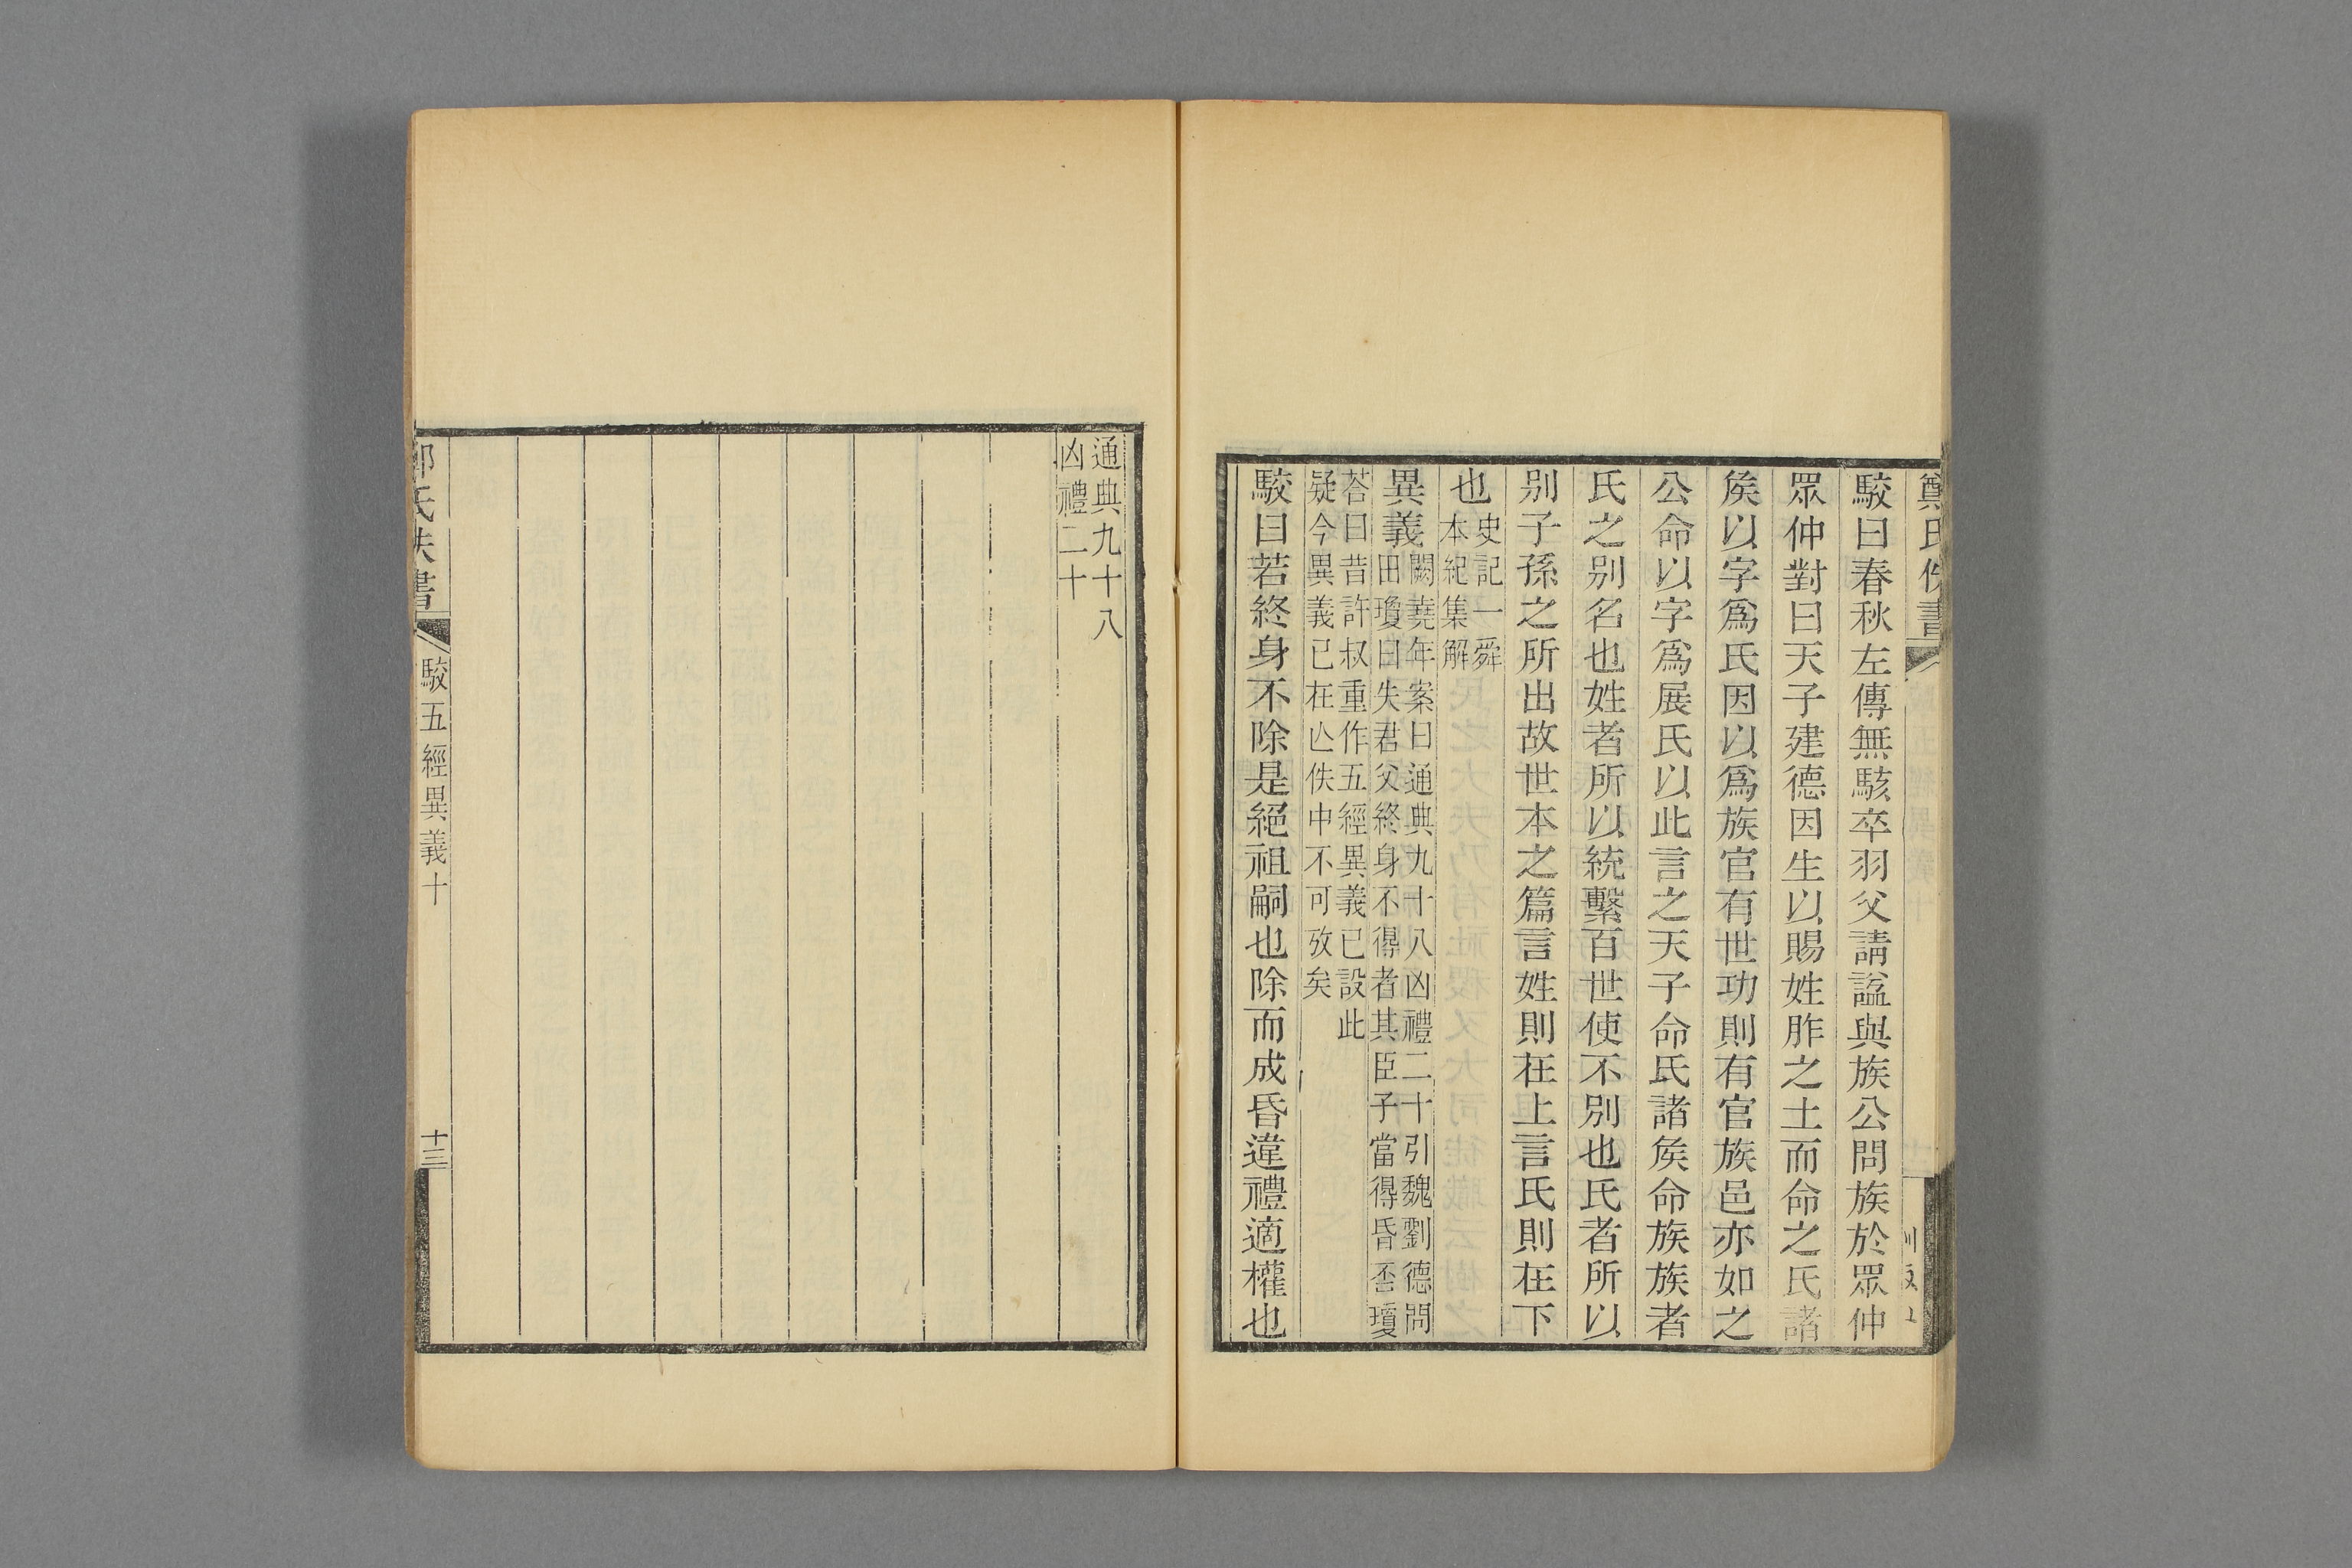 鄭氏佚書
駮曰春秋左傳無駭卒羽父請諡與族公問族於眾仲
眾仲對曰天子建德因生以賜姓胙之土而命之氏諸
矦以字爲氏因以爲族官有世功則有官族邑亦如之
公命以字爲展氏以此言之天子命氏諸矦命族族者
氏之别名也姓者所以統繫百世使不別也氏者所以
别子孫之所出故世本之篇言姓則在上言氏則在下
也史記一舜
本紀集解
異義闕蕘年案曰通典九十八凶禮二十引魏劉德問
田瓊曰失君父終身不得者其臣子當得昏否瓊
荅曰昔許叔重作五經異義已設此
疑今異義已在亾佚中不可攷矣
駮曰若終身不除是絕祖嗣也除而成昏違禮適權也
通典九十八
凶禮二十
鄭氏佚書
駮五經異義十
十三